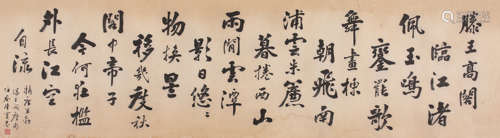 滕王高閣
臨江渚
佩玉鳴
鑾罷歌
舞畫棟
朝飛南
浦雲朱簾
暮捲西山
雨閒雲潭
影日悠々
物換星
移幾度秋
閣中帝子
今何在檻
外長江空
自流